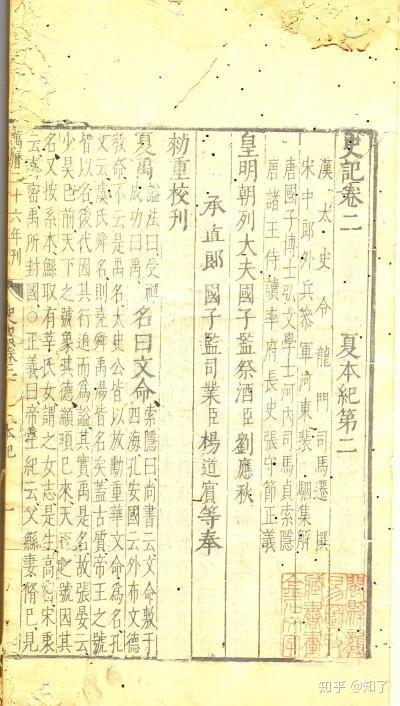 史記卷二 夏本紀第二
漢太史令龍門司馬遷撰
宋中郎外兵參軍河東裴駰集解
唐國子博士弘文學士河內司馬貞索隱
唐諸王侍讀率府長史張守節正義
皇明朝列大夫國子監祭酒臣劉應秋
承直郎國子監司業臣楊道賓等奉
勑重校刊
夏禹
謚法曰受禪
成功曰禹
名曰文命
索隱曰尚書云文命敷于
四海孔安國云外布文德
教命不云是禹名太史公皆以放勳重華文命為名孔
文云虞氏舜名則堯舜禹湯皆名矣蓋古質帝王之號
皆以名後代因其行追而為謚其實禹是名故張晏云
少昊已前天下之號象其德顓頊已來天下之號因其
名又按系本鯀取有辛氏女謂之女志是生高密宋衷
云高密禹所封國○正義曰帝王紀云父鯀妻脩巳見
萬曆二十六年刊
史記卷二
本紀
一
知乎 @知了